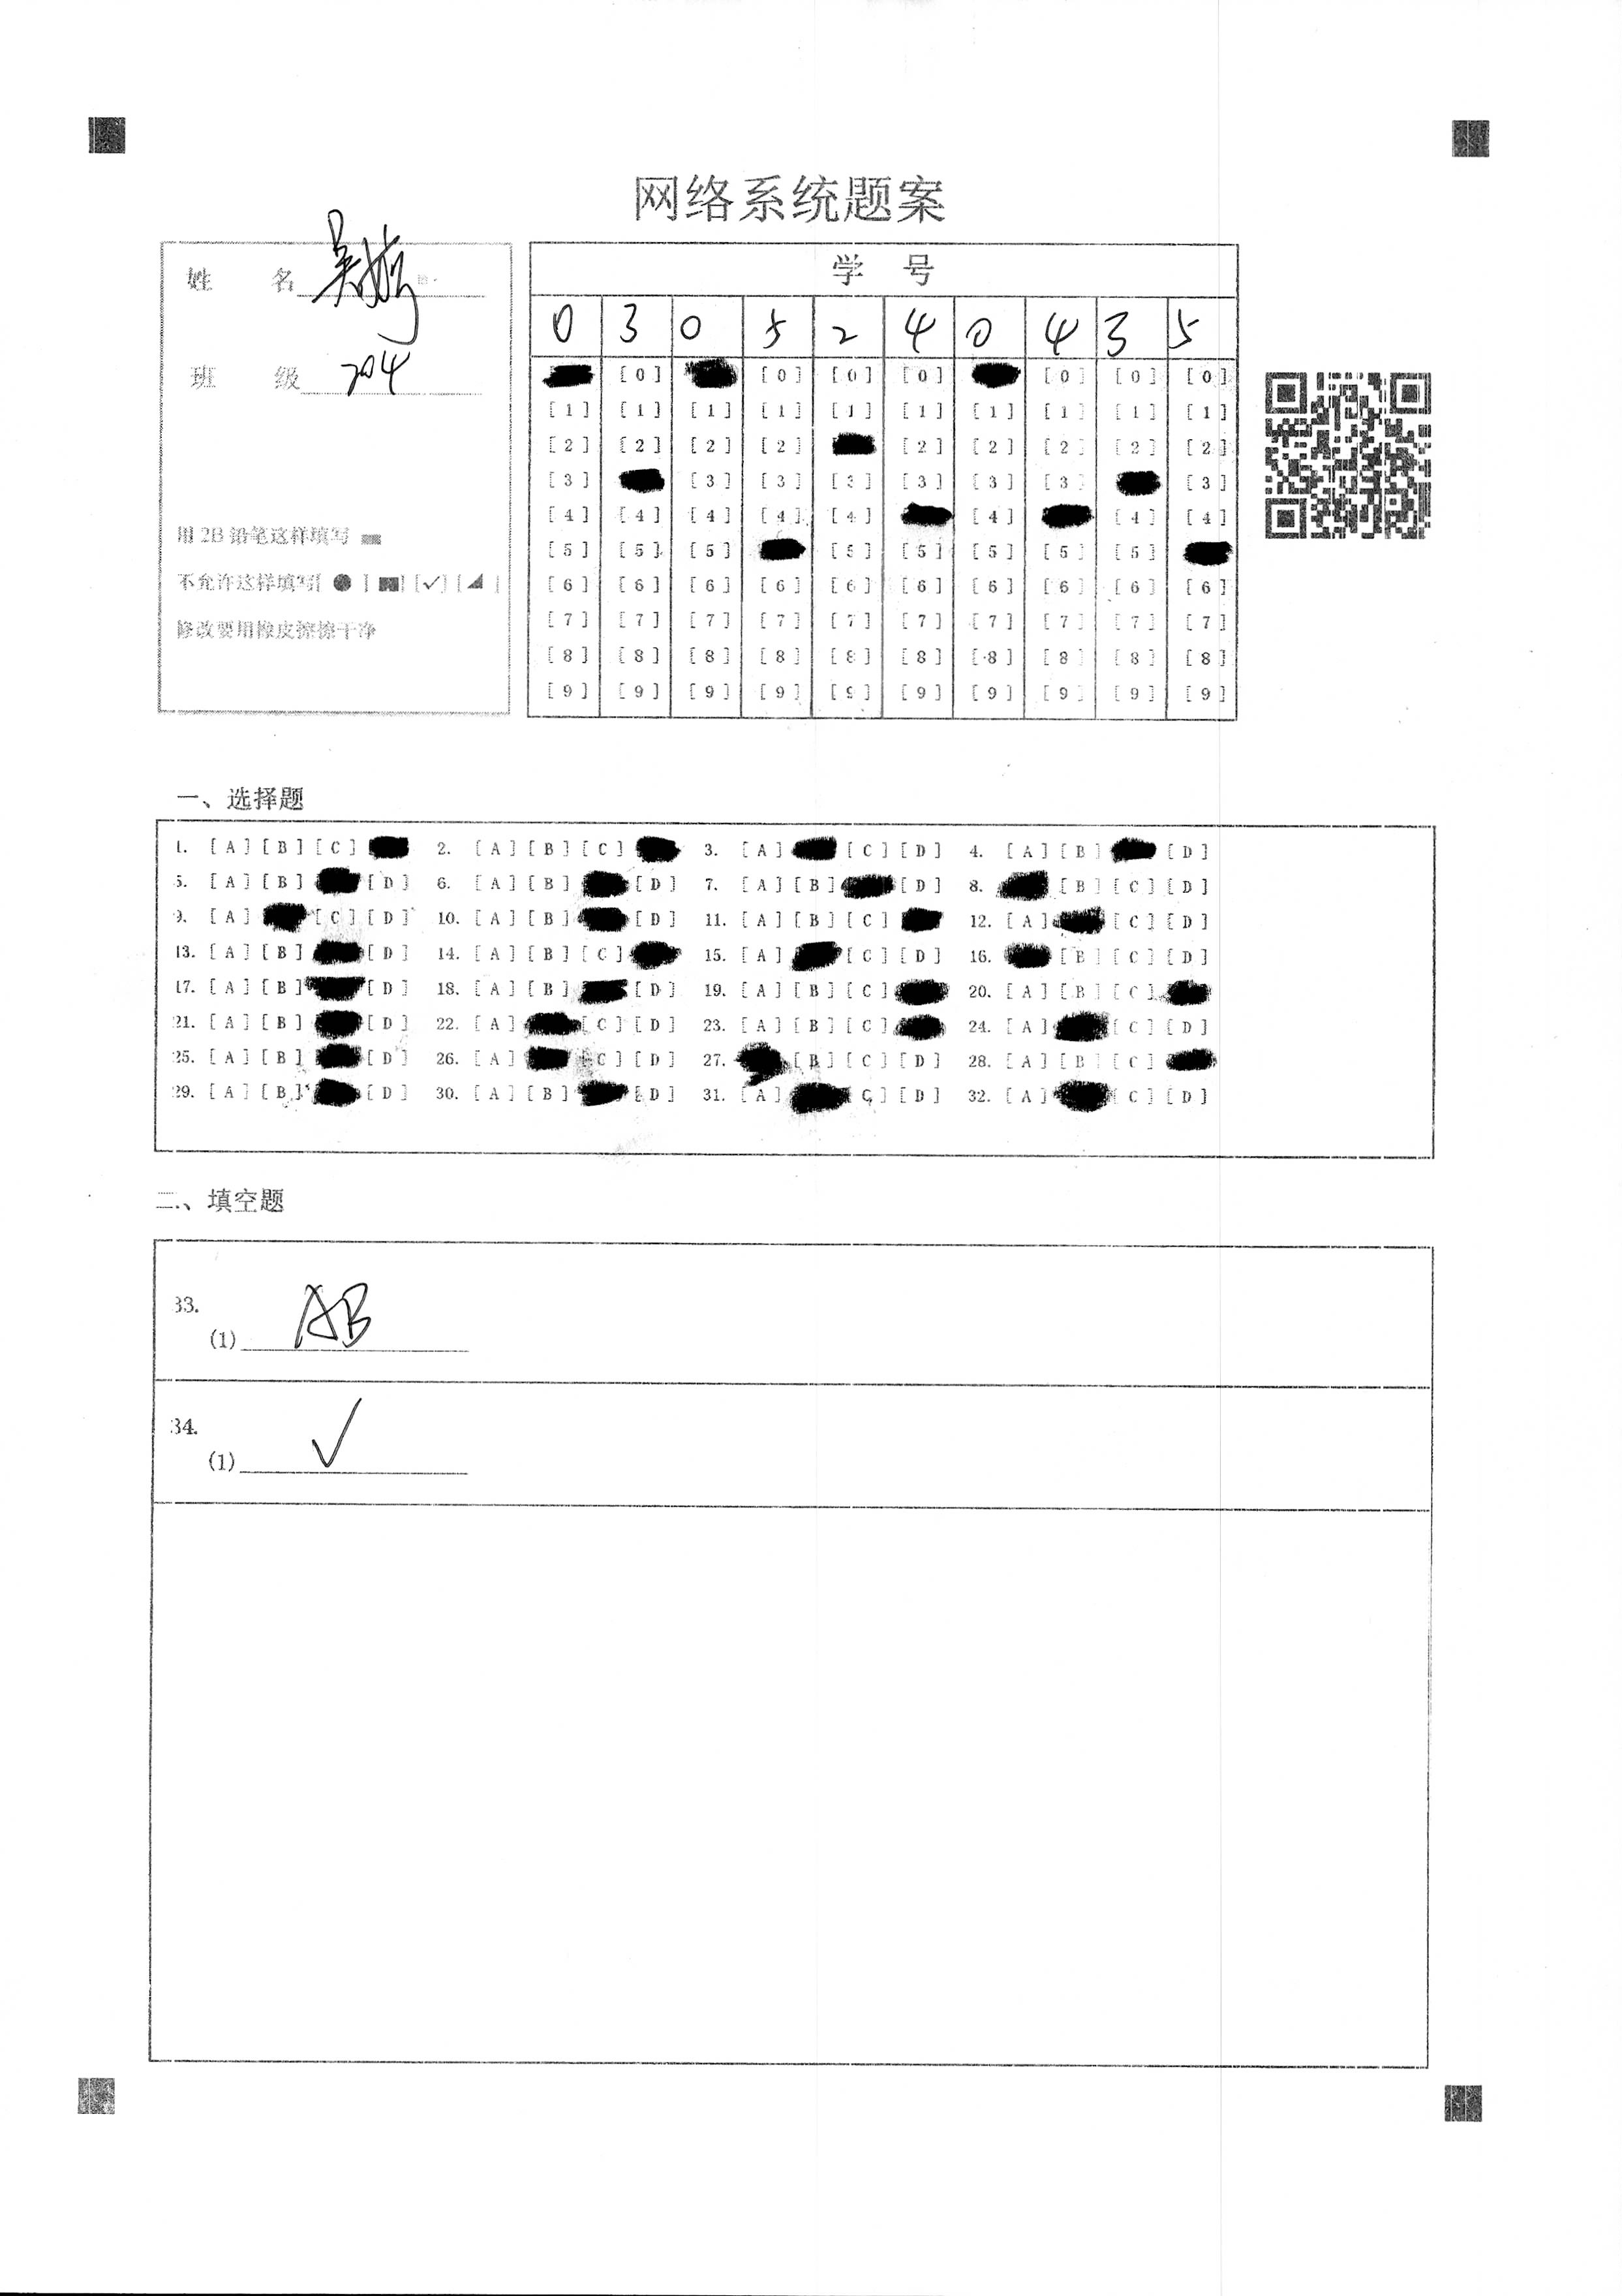 网络系统题案
姓 名 吴
班 级 204
用2B铅笔这样填写
不允许这样填写[ ● ] [■] [✓] [◢ ]
修改要用橡皮擦擦干净
学 号
0 3 0 5 2 4 0 4 3 5
[0] [0] [0] [0] [0] [0] [0]
[1] [1] [1] [1] [1] [1] [1] [1] [1] [1]
[2] [2] [2] [2] [2] [2] [2] [2] [2]
[3] [3] [3] [3] [3] [3] [3] [3]
[4] [4] [4] [4] [4] [4] [4] [4]
[5] [5] [5] [5] [5] [5] [5] [5]
[6] [6] [6] [6] [6] [6] [6] [6] [6] [6]
[7] [7] [7] [7] [7] [7] [7] [7] [7] [7]
[8] [8] [8] [8] [8] [8] [8] [8] [8] [8]
[9] [9] [9] [9] [9] [9] [9] [9] [9] [9]
一、选择题
1. [A] [B] [C] 2. [A] [B] [C] 3. [A] [C] [D] 4. [A] [B] [D]
5. [A] [B] [D] 6. [A] [B] [D] 7. [A] [B] [D] 8. [B] [C] [D]
9. [A] [C] [D] 10. [A] [B] [D] 11. [A] [B] [C] 12. [A] [C] [D]
13. [A] [B] [D] 14. [A] [B] [C] 15. [A] [C] [D] 16. [B] [C] [D]
17. [A] [B] [D] 18. [A] [B] [D] 19. [A] [B] [C] 20. [A] [B] [C]
21. [A] [B] [D] 22. [A] [C] [D] 23. [A] [B] [C] 24. [A] [C] [D]
25. [A] [B] [D] 26. [A] [C] [D] 27. [B] [C] [D] 28. [A] [B] [C]
29. [A] [B] [D] 30. [A] [B] [D] 31. [A] [C] [D] 32. [A] [C] [D]
二、填空题
33.
(1) AB
34.
(1) ✓